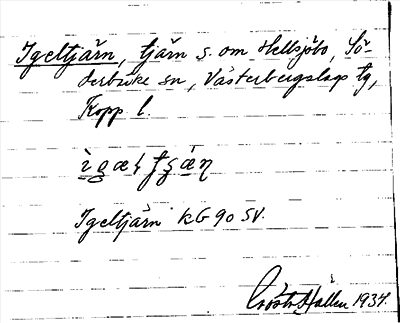 Igeltjärn, tjärn s. om Hellsjöbo, Sö-
derbärke sn, Västerbergslags tg,
Kopp l.
Igeltjärn KG 90 SV.
Gösta Hallén 1934.